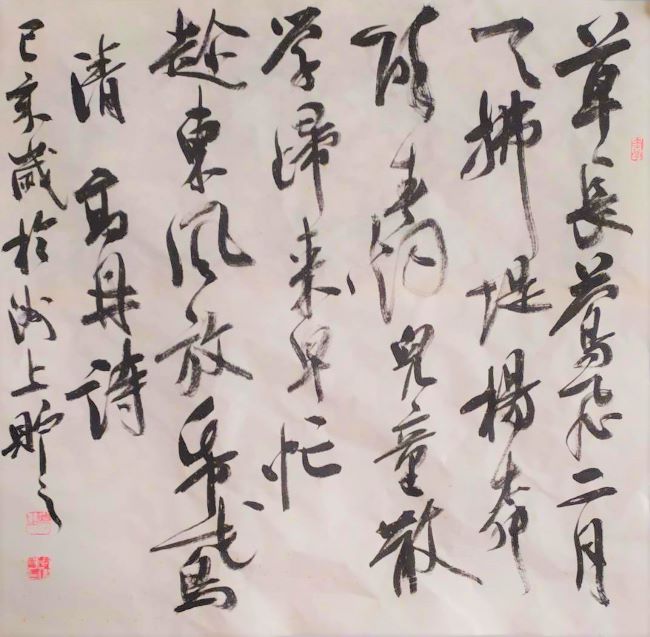 草長鶯飛二月
天拂堤楊柳
醉春烟兒童散
学歸来早忙
趁東風放帋鳶
清 高鼎詩
己亥歲於上之